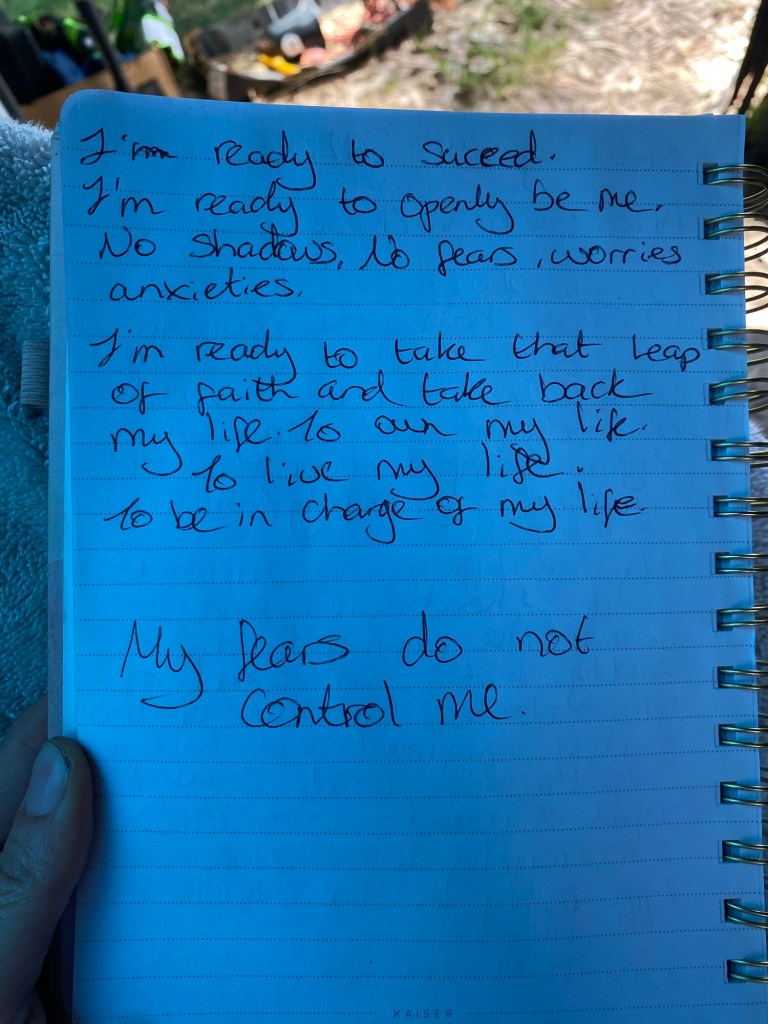 I'm ready to suceed.
I'm ready to openly be me.
No shadows, No fears, worries
anxieties.
I'm ready to take that leap
of faith and take back
my life. To own my life.
To live my life.
To be in charge of my life.
My fears do not
control me.
KAISER